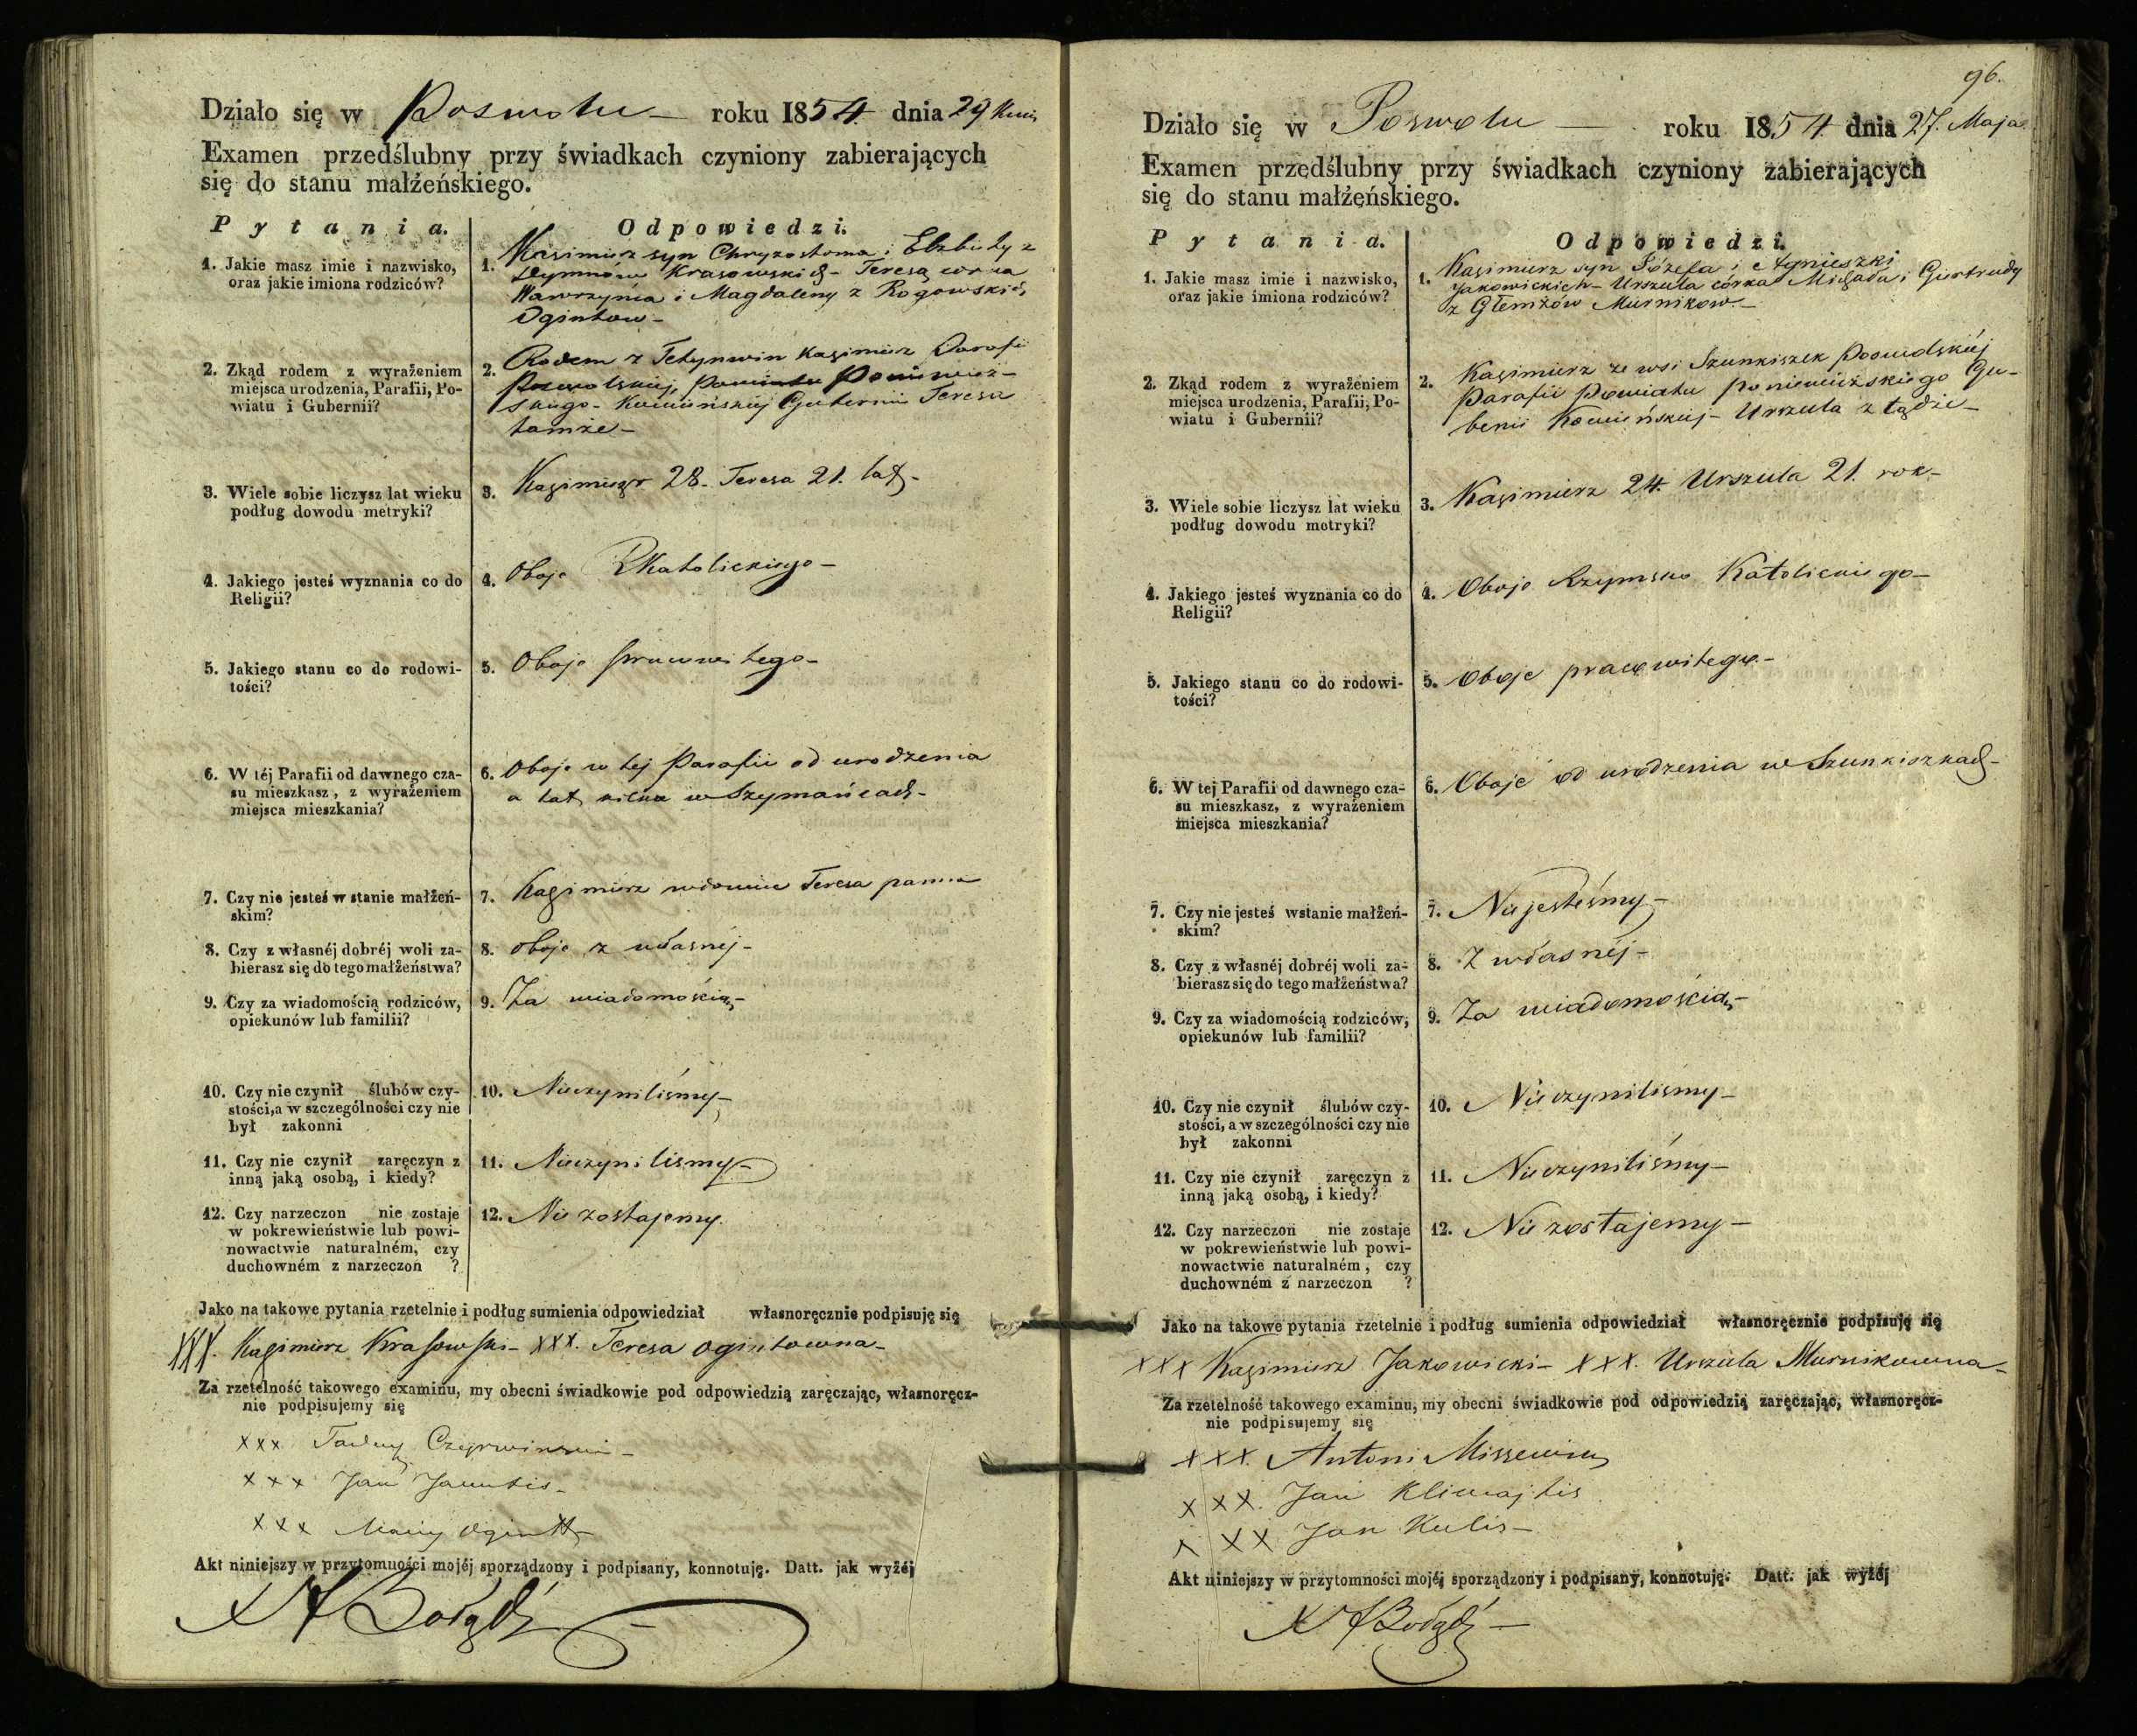 Działo się w Poswolu — roku 1854 dnia 29 Kwie
Examen przedślubny przy świadkach czyniony zabierających
się do stanu małżeńskiego.
Pytania.
Odpowiedzi.
1. Jakie masz imie i nazwisko,
oraz jakie imiona rodziców?
1. Kazimierz syn Chryzostoma i Elzbiety z
Krasowskich - Teresa córka
Wawrzyńca i Magdaleny z Rogowskich
Ogintow -
2. Zkąd rodem z wyrażeniem
miejsca urodzenia, Parafii, Po-
wiatu i Gubernii?
2. Rodem z Kazimierz Parafii
Poswolskiej, Powiatu Poniewież-
skiego - Kowieńskiej Gubernii Teresa
tamże -
3. Wiele sobie liczysz lat wieku
podług dowodu metryki?
3. Kazimierz 28. Teresa 21. lat -
4. Jakiego jesteś wyznania co do
Religii?
4. Oboje RKatolickiego -
5. Jakiego stanu co do rodowi-
tości?
5. Oboje pracowitego -
6. W téj Parafii od dawnego cza-
su mieszkasz, z wyrażeniem
miejsca mieszkania?
6. Oboje w tej Parafii od urodzenia
a lat kilka w Szymańcach -
7. Czy nie jesteś w stanie małżeń-
skim?
7. Kazimierz wdowiec Teresa panna
8. Czy z własnéj dobréj woli za-
bierasz się do tego małżeństwa?
8. Oboje z własnéj -
9. Czy za wiadomością rodziców,
opiekunów lub familii?
9. Za wiadomością -
10. Czy nie czynił ślubów czy-
stości, a w szczególności czy nie
był zakonni
10. Nieczyniliśmy -
11. Czy nie czynił zaręczyn z
inną jaką osobą, i kiedy?
11. Nieczyniliśmy -
12. Czy narzeczon nie zostaje
w pokrewieństwie lub powi-
nowactwie naturalném, czy
duchowném z narzeczon ?
12. Nie zostajemy.
Jako na takowe pytania rzetelnie i podług sumienia odpowiedział własnoręcznie podpisuję się
XXX. Kazimierz Krasowski - XXX. Teresa Ogintowna -
Za rzetelność takowego examinu, my obecni świadkowie pod odpowiedzią zaręczając, własnoręcz-
nie podpisujemy się
xxx Tadeusz Czerwinski -
xxx Jan
xxx Ogintt -
Akt niniejszy w przytomności mojéj sporządzony i podpisany, konnotuję. Datt. jak wyżéj
96.
Działo się w Poswolu — roku 1854 dnia 27. Maja
Examen przedślubny przy świadkach czyniony zabierających
się do stanu małżeńskiego.
Pytania.
Odpowiedzi.
1. Jakie masz imie i nazwisko,
oraz jakie imiona rodziców?
1. Kazimierz syn Józefa i Agnieszki
Jakowickich - Urszula córka Michała i Giertrudy
z Głemżów Murnikow -
2. Zkąd rodem z wyrażeniem
miejsca urodzenia, Parafii, Po-
wiatu i Gubernii?
2. Kazimierz ze wsi Szunkiszek Poswolskiéj
Parafii Powiatu Poniewiezskiego Gu-
bernii Kowieńskiej - Urszula z tądże -
3. Wiele sobie liczysz lat wieku
podług dowodu metryki?
3. Kazimierz 24. Urszula 21. rok -
4. Jakiego jesteś wyznania co do
Religii?
4. Oboje Rzymsko Katolickiego -
5. Jakiego stanu co do rodowi-
tości?
5. Oboje pracowitego -
6. W tej Parafii od dawnego cza-
su mieszkasz, z wyrażeniem
miejsca mieszkania?
6. Oboje od urodzenia w Szunkiszkach -
7. Czy nie jesteś wstanie małżeń-
skim?
7. Niejesteśmy -
8. Czy z własnéj dobréj woli za-
bierasz się do tego małżeństwa?
8. Z własnéj -
9. Czy za wiadomością rodziców,
opiekunów lub familii?
9. Za wiadomością -
10. Czy nie czynił ślubów czy-
stości, a w szczególności czy nie
był zakonni
10. Nieczyniliśmy -
11. Czy nie czynił zaręczyn z
inną jaką osobą, i kiedy?
11. Nieczyniliśmy -
12. Czy narzeczon nie zostaje
w pokrewieństwie lub powi-
nowactwie naturalném, czy
duchowném z narzeczon ?
12. Nie zostajemy -
Jako na takowe pytania rzetelnie i podług sumienia odpowiedział własnoręcznie podpisuję się
XXX Kazimierz Jakowicki - XXX. Urszula Murnikowna -
Za rzetelność takowego examinu, my obecni świadkowie pod odpowiedzią zaręczając, własnoręcz-
nie podpisujemy się
XXX. Antoni Missewicz
XXX. Jan Klimajtis
XXX Jan Kulis -
Akt niniejszy w przytomności mojéj sporządzony i podpisany, konnotuję. Datt. jak wyżéj